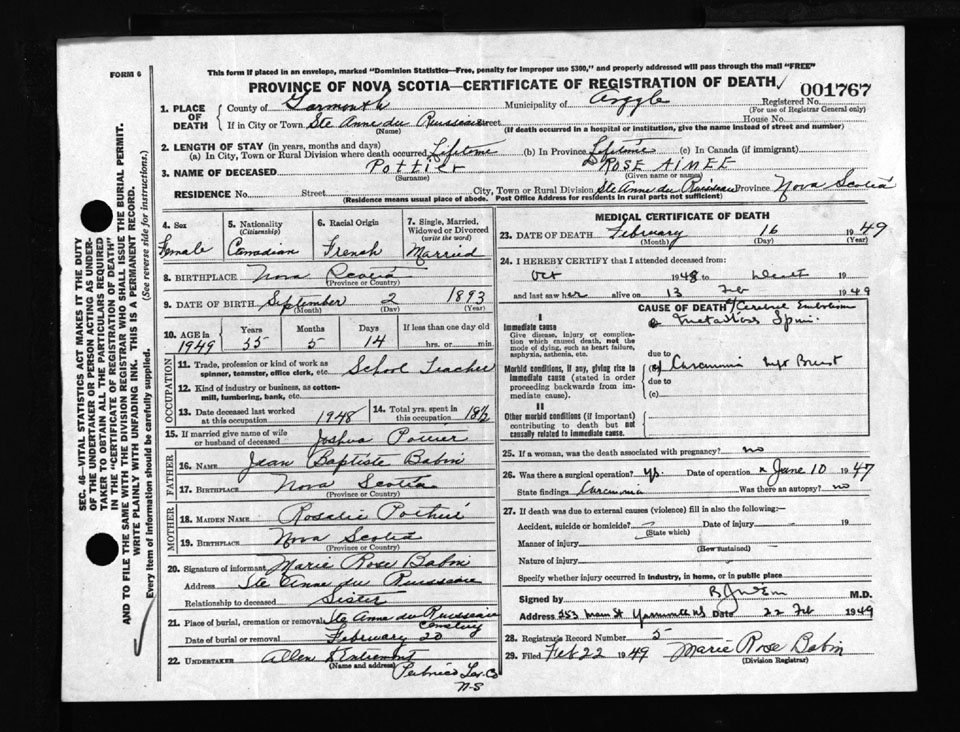 FORM 6
This form if placed in an envelope, marked "Dominion Statistics—Free, penalty for improper use $300," and properly addressed will pass through the mail "FREE"
PROVINCE OF NOVA SCOTIA—CERTIFICATE OF REGISTRATION OF DEATH
001767
SEC. 46—VITAL STATISTICS ACT MAKES IT THE DUTY
OF THE UNDERTAKER OR PERSON ACTING AS UNDER-
TAKER TO OBTAIN ALL THE PARTICULARS REQUIRED
IN THE "CERTIFICATE OF REGISTRATION OF DEATH"
AND TO FILE THE SAME WITH THE DIVISION REGISTRAR WHO SHALL ISSUE THE BURIAL PERMIT.
WRITE PLAINLY WITH UNFADING INK. THIS IS A PERMANENT RECORD.
Every item of information should be carefully supplied. (See reverse side for instructions.)
1. PLACE OF DEATH County of Yarmouth Municipality of Argyle Registered No.
(For use of Registrar General only)
If in City or Town Ste Anne du Ruisseau Street House No.
(Name) (If death occurred in a hospital or institution, give the name instead of street and number)
2. LENGTH OF STAY (in years, months and days)
(a) In City, Town or Rural Division where death occurred Lifetime (b) In Province Lifetime (c) In Canada (if immigrant)
3. NAME OF DECEASED Pottier ROSE AIMEE
(Surname) (Given name or names)
RESIDENCE No. Street City, Town or Rural Division Ste Anne du Ruisseau Province Nova Scotia
(Residence means usual place of abode. Post Office Address for residents in rural parts not sufficient)
4. Sex 5. Nationality 6. Racial Origin 7. Single, Married,
(Citizenship) Widowed or Divorced
(write the word)
Female Canadian French Married
8. BIRTHPLACE Nova Scotia
(Province or Country)
9. DATE OF BIRTH September 2 1893
(Month) (Day) (Year)
10. AGE in Years Months Days If less than one day old
1949 55 5 14 hrs. or min.
OCCUPATION
11. Trade, profession or kind of work as
spinner, teamster, office clerk, etc. School Teacher
12. Kind of industry or business, as cotton-
mill, lumbering, bank, etc.
13. Date deceased last worked
at this occupation 1948
14. Total yrs. spent in
this occupation 18½
15. If married give name of wife
or husband of deceased Joshua Pottier
FATHER
16. NAME Jean Baptiste Babin
17. BIRTHPLACE Nova Scotia
(Province or Country)
MOTHER
18. MAIDEN NAME Rosalie
19. BIRTHPLACE Nova Scotia
(Province or Country)
20. Signature of informant Marie Rose Babin
Address Ste Anne du Ruisseau
Relationship to deceased Sister
21. Place of burial, cremation or removal Ste Anne du Ruisseau
Cemetery
Date of burial or removal February 20
22. UNDERTAKER Allen d'Entremont
(Name and address)
Pubnico Yar. Co
N-S
MEDICAL CERTIFICATE OF DEATH
23. DATE OF DEATH February 16 1949
(Month) (Day) (Year)
24. I HEREBY CERTIFY that I attended deceased from:
Oct 1948 to Death 19
and last saw her alive on 13 Feb 1949
I
Immediate cause
Give disease, injury or complica-
tion which caused death, not the
mode of dying, such as heart failure,
asphyxia, asthenia, etc.
Morbid conditions, if any, giving rise to
immediate cause (stated in order
proceeding backwards from im-
mediate cause).
II
Other morbid conditions (if important)
contributing to death but not
causally related to immediate cause.
CAUSE OF DEATH Cerebral Embolism
Spine
due to
(b) Carcinoma Left Breast
due to
(c)
25. If a woman, was the death associated with pregnancy? no
26. Was there a surgical operation? yes Date of operation June 10 1947
State findings Carcinoma Was there an autopsy? no
27. If death was due to external causes (violence) fill in also the following:—
Accident, suicide or homicide? Date of injury 19
(State which)
Manner of injury
(How sustained)
Nature of injury
Specify whether injury occurred in industry, in home, or in public place
Signed by M.D.
Address 353 Main St Yarmouth NS Date 22 Feb 1949
28. Registrar's Record Number 5
29. Filed Feb 22 1949 Marie Rose Babin
(Division Registrar)